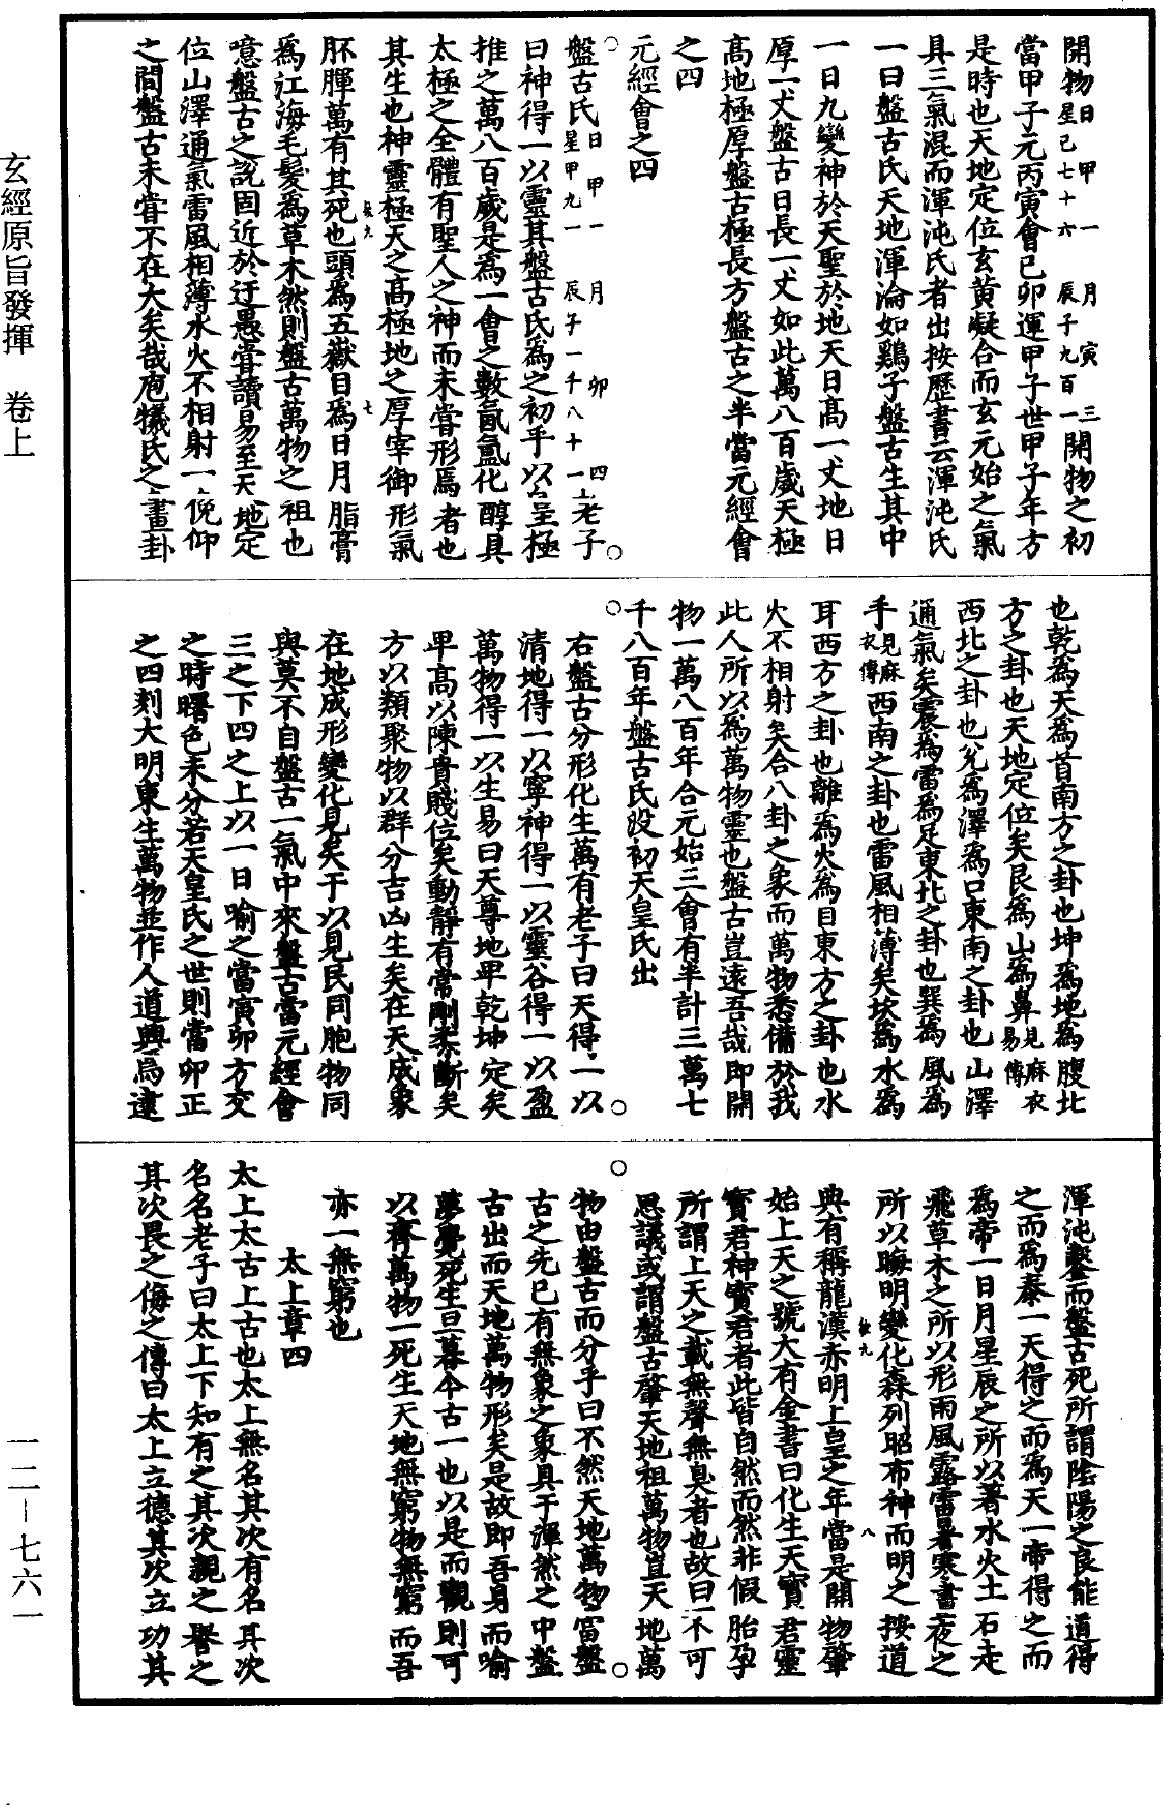 開物日甲一月寅三星己七十六辰子九百一開物之初
當甲子元丙寅會己卯運甲子世甲子年方
是時也天地定位玄黃凝合而玄元始之氣
具三氣混而渾沌氏者出按歷書云渾沌氏
一曰盤古氏天地渾淪如鷄子盤古生其中
一日九變神於天聖於地天日高一丈地日
厚一丈盤古日長一丈如此萬八百歲天極
高地極厚盤古極長方盤古之半當元經會
之四
元經會之四
盤古氏日甲一月卯四星甲九一辰子一千八十一老子
曰神得一以靈其盤古氏爲之初乎以呈極
推之萬八百歲是爲一會之數氤氳化醇具
太極之全體有聖人之神而未嘗形焉者也
其生也神靈極天之高極地之厚宰御形氣
胚腪萬有其死也頭爲五嶽目爲日月脂膏
爲江海毛髮爲草木然則盤古萬物之祖也
噫盤古之說固近於迂愚嘗讀易至天地定
位山澤通氣雷風相薄水火不相射一俛仰
之間盤古未嘗不在大矣哉庖犧氏之畫卦
也乾爲天爲首南方之卦也坤爲地爲腹北
方之卦也天地定位矣艮爲山爲鼻見麻衣易傳
西北之卦也兌爲澤爲口東南之卦也山澤
通氣矣震爲雷爲足東北之卦也巽爲風爲
手見麻衣傳西南之卦也雷風相薄矣坎爲水爲
耳西方之卦也離爲火爲目東方之卦也水
火不相射矣合八卦之象而萬物悉備於我
此人所以爲萬物靈也盤古豈遠吾哉即開
物一萬八百年合元始三會有半計三萬七
千八百年盤古氏沒初天皇氏出
右盤古分形化生萬有老子曰天得一以
清地得一以寧神得一以靈谷得一以盈
萬物得一以生易曰天尊地卑乾坤定矣
卑高以陳貴賤位矣動靜有常剛柔斷矣
方以類聚物以群分吉凶生矣在天成象
在地成形變化見矣于以見民同胞物同
與莫不自盤古一氣中來盤古當元經會
三之下四之上以一日喻之當寅卯方交
之時曙色未分若天皇氏之世則當卯正
之四刻大明東生萬物並作人道興焉遠
渾沌鑿而盤古死所謂陰陽之良能道得
之而爲泰一天得之而爲天一帝得之而
爲帝一日月星辰之所以著水火土石走
飛草木之所以形雨風露雷暑寒晝夜之
所以晦明變化森列昭布神而明之按道
典有稱龍漢赤明上皇之年當是開物肇
始上天之號大有金書曰化生天寳君靈
寳君神寳君者此皆自然而然非假胎孕
所謂上天之載無聲無臭者也故曰不可
思議或謂盤古肇天地祖萬物豈天地萬
物由盤古而分乎曰不然天地萬物當盤
古之先已有無象之象具于渾然之中盤
古出而天地萬物形矣是故即吾身而喻
夢覺死生旦暮今古一也以是而觀則可
以齊萬物一死生天地無窮物無窮而吾
亦一無窮也
太上章四
太上太古上古也太上無名其次有名其次
名名老子曰太上下知有之其次親之譽之
其次畏之侮之傳曰太上立德其次立功其
玄經原旨發揮 卷上
一二－七六一